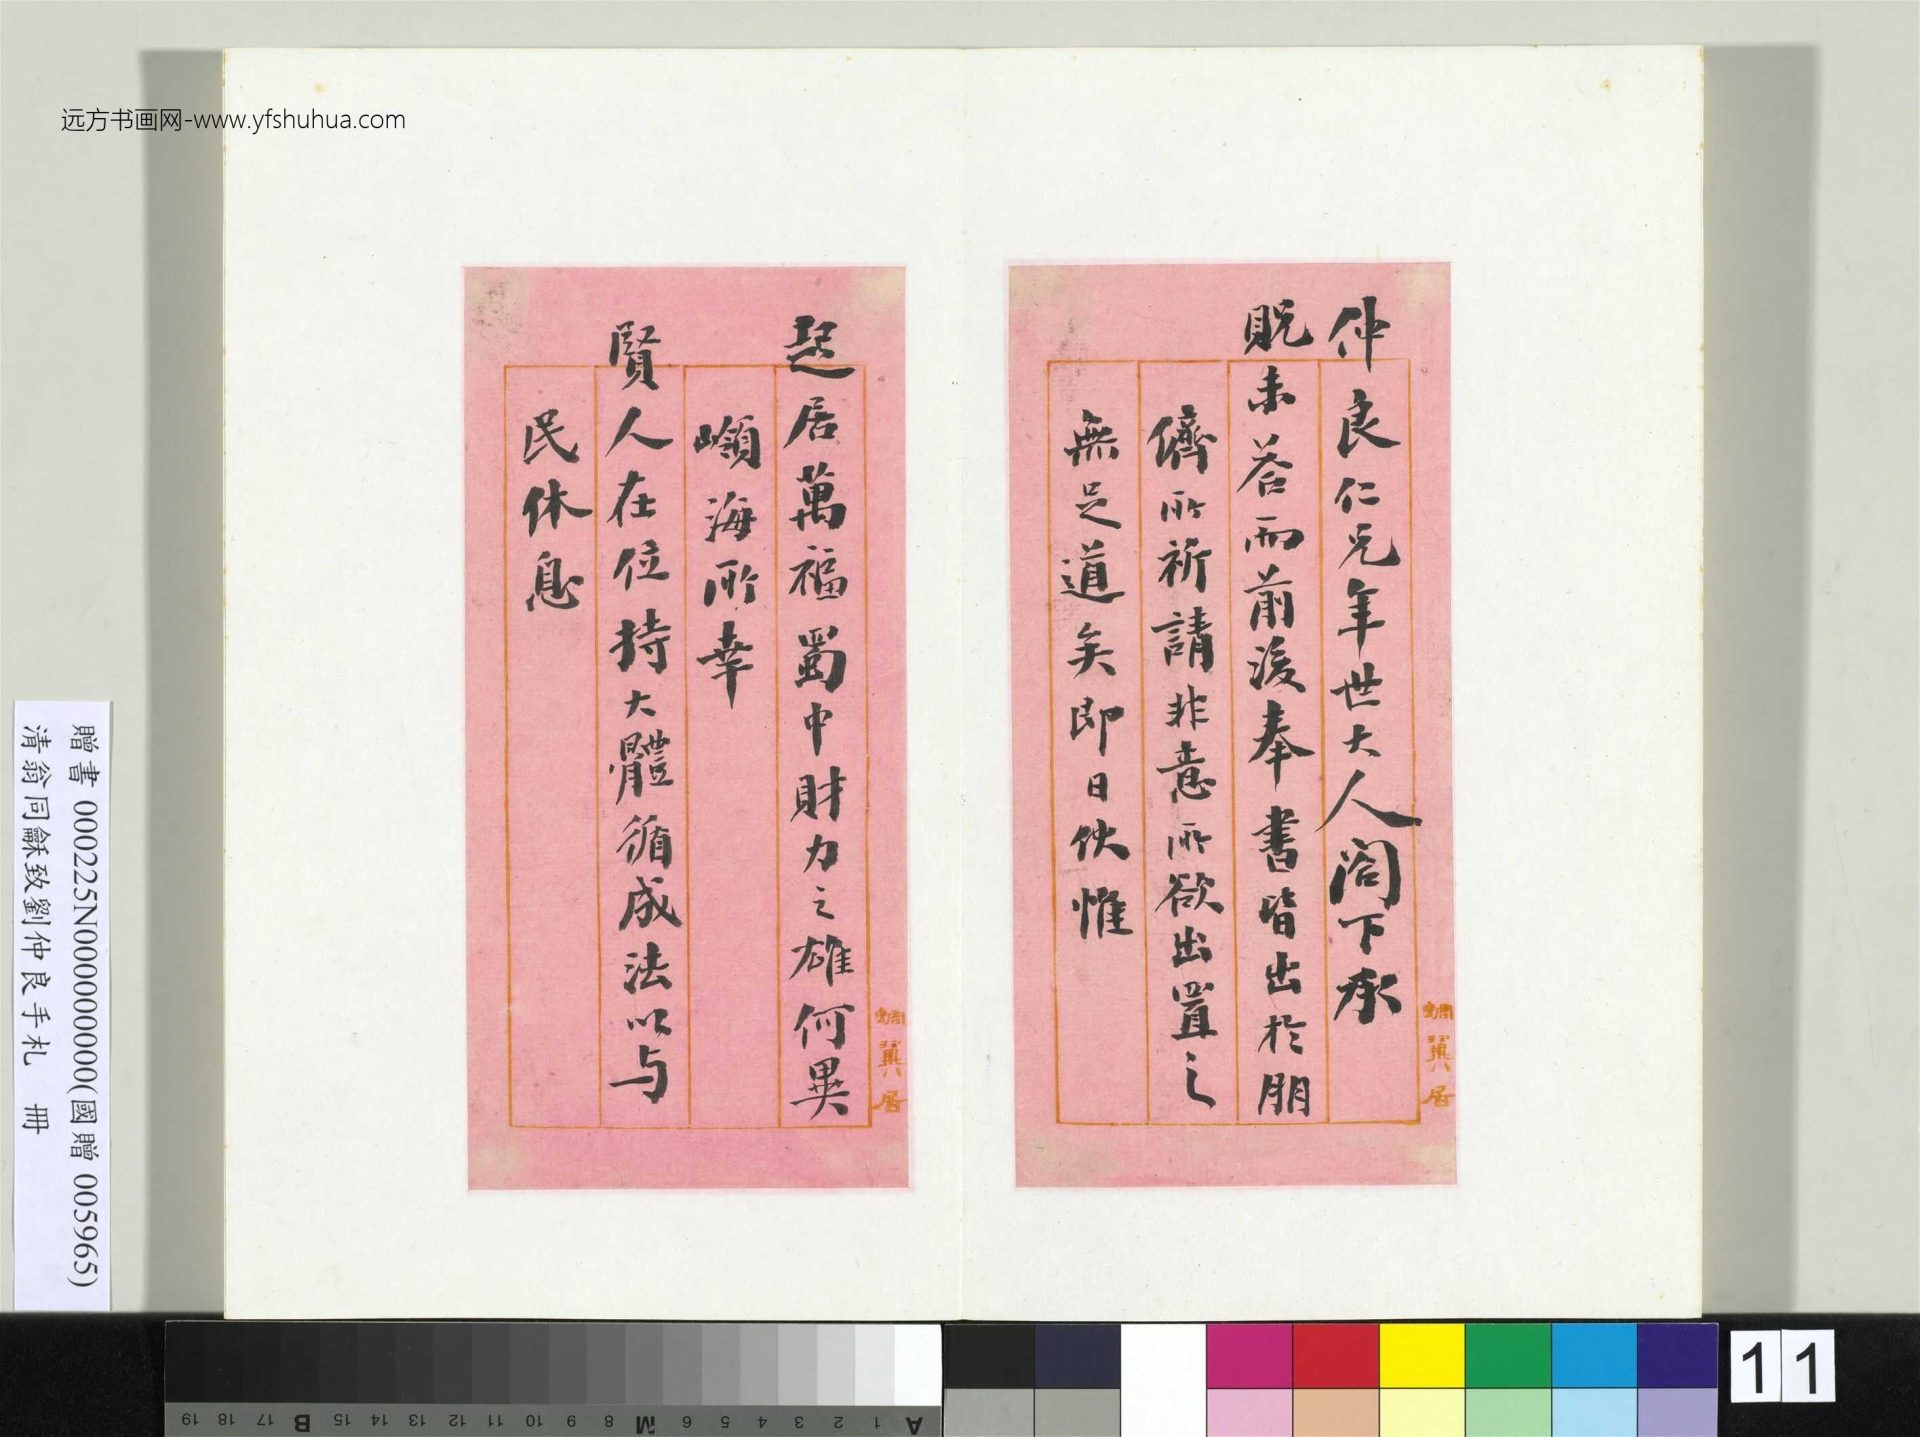 远方书画网-www.yfshuhua.com
仲良仁兄年世大人閣下承
貺未荅而前後奉書皆出於朋
儕所祈請非意所欲出置之
無足道矣即日伏惟
蜩翼居
起居萬福蜀中財力之雄何異
嶺海所幸
賢人在位持大體循成法以与
民休息
蜩翼居
贈書 000225N000000000(國贈 005965)
清翁同龢致劉仲良手札 冊
11
A 1 2 3 4 5 6 M 8 9 10 11 12 13 14 15 B 17 18 19